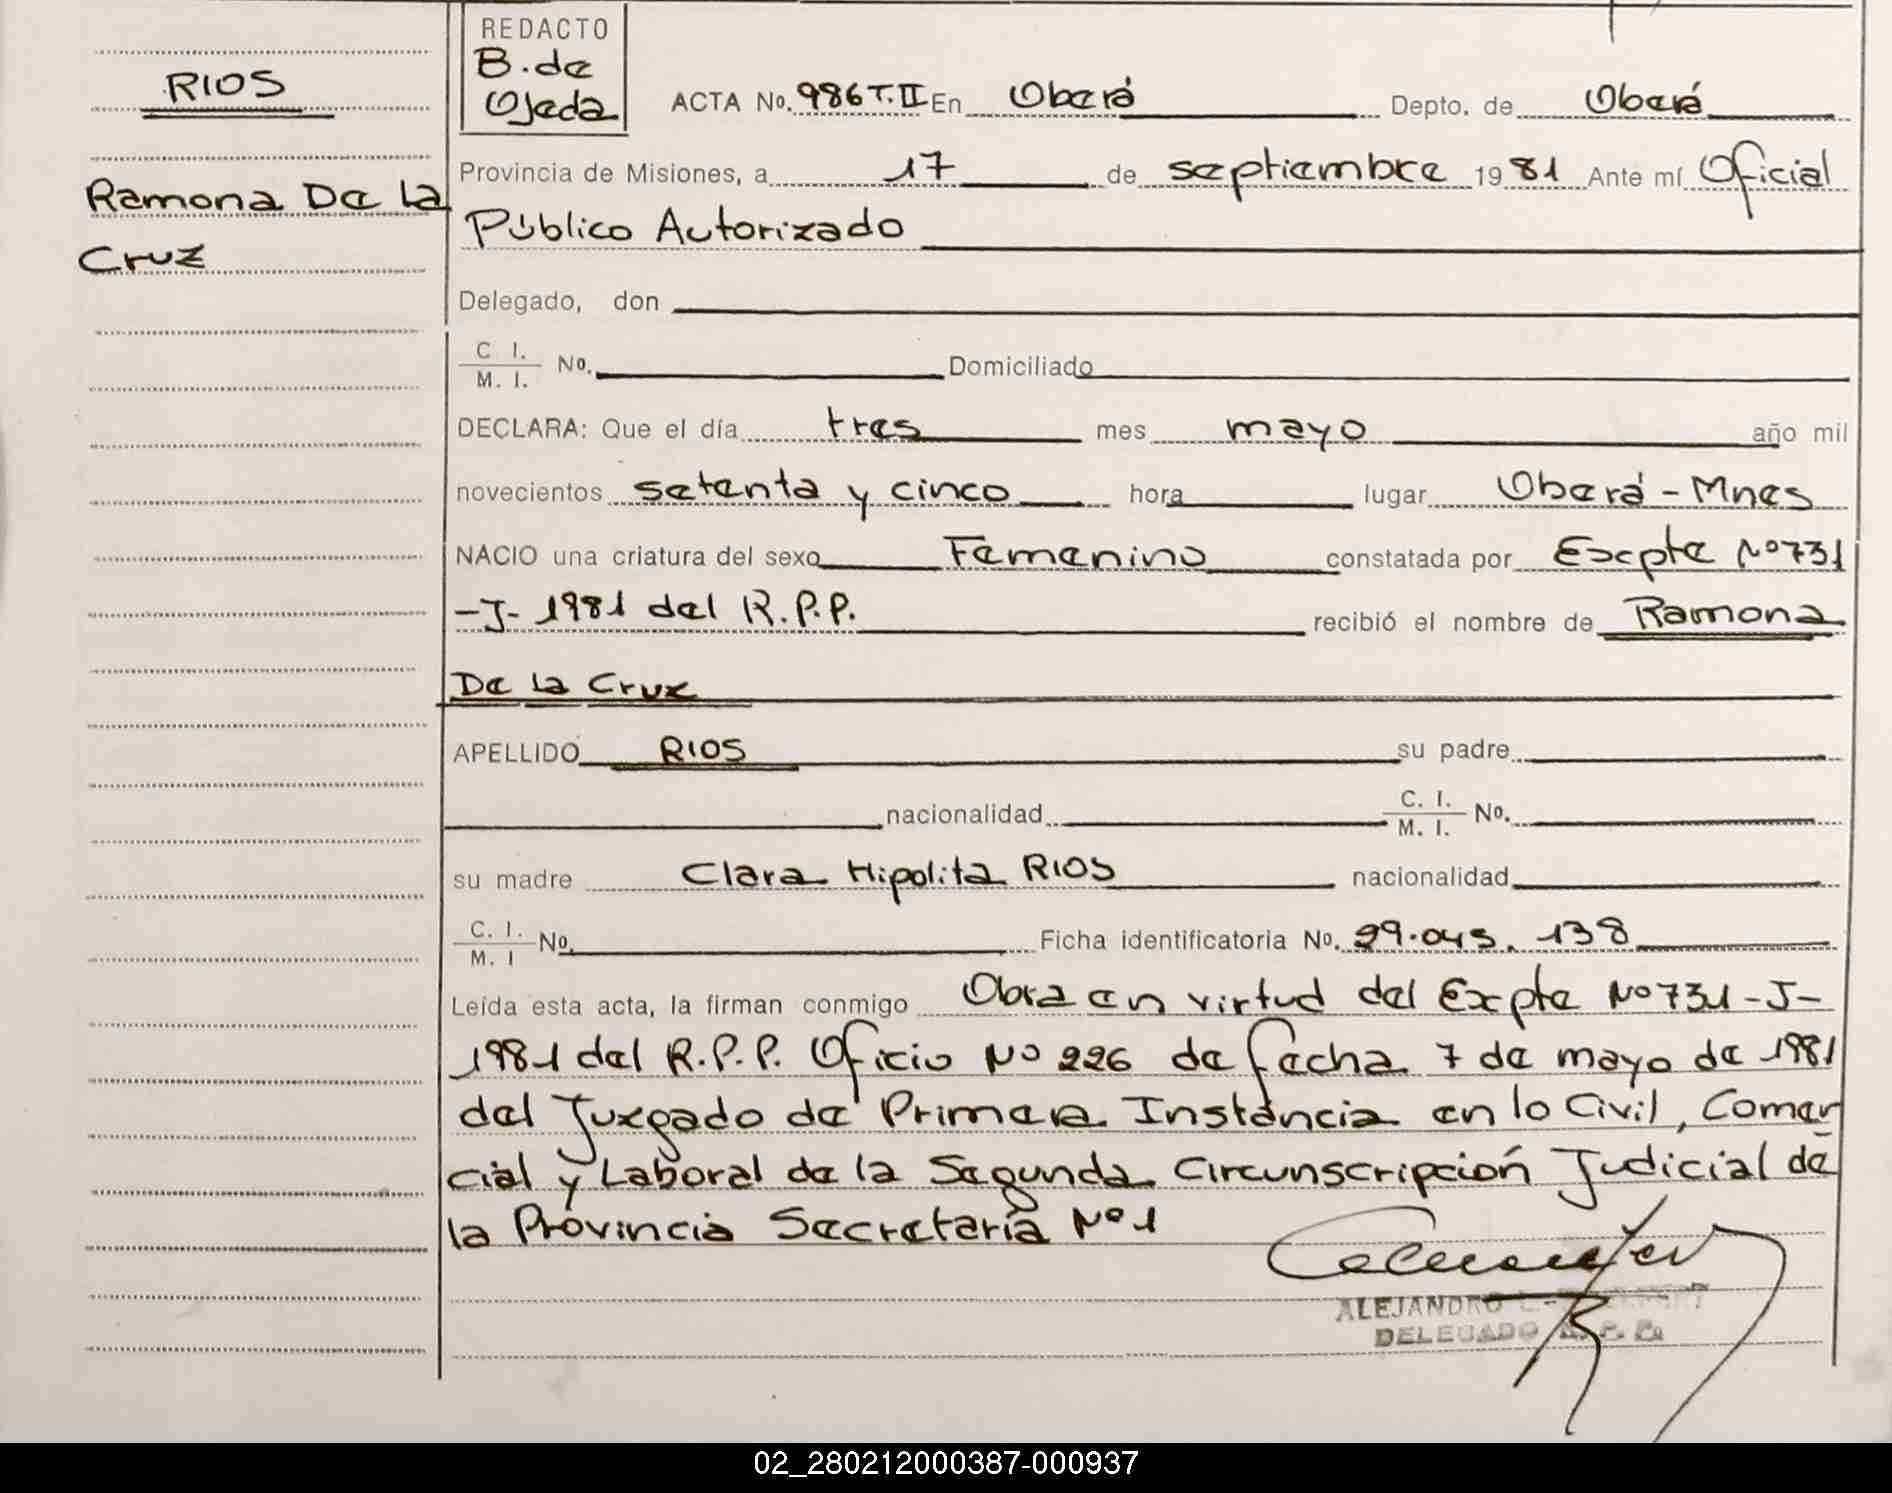 RIOS
Ramona De la
Cruz
REDACTO
B. de
Ojeda
ACTA No. 986 T. II En Oberá Depto. de Oberá
Provincia de Misiones, a 17 de septiembre 1981 Ante mí Oficial
Público Autorizado
Delegado, don
C. I. / M. I. No. Domiciliado
DECLARA: Que el día tres mes mayo año mil
novecientos setenta y cinco hora lugar Oberá - Mnes
NACIO una criatura del sexo Femenino constatada por Excpte Nº 731
-J- 1981 del R.P.P. recibió el nombre de Ramona
De la Cruz
APELLIDO RIOS su padre
nacionalidad C. I. / M. I. No.
su madre Clara Hipolita RIOS nacionalidad
C. I. / M. I No. Ficha identificatoria No. 29.045.138
Leída esta acta, la firman conmigo Obra en virtud del Expte Nº 731-J-
1981 del R.P.P. Oficio Nº 226 de fecha 7 de mayo de 1981
del Juzgado de Primera Instancia en lo Civil, Comer
cial y Laboral de la Segunda Circunscripción Judicial de
la Provincia Secretaría Nº 1
ALEJANDRO
DELEGADO R. P. P.
02_280212000387-000937